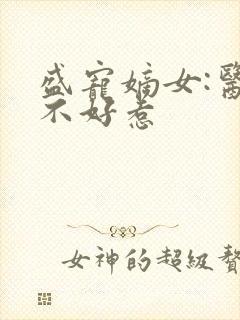 盛寵嫡女:醫
不好惹
女神的超級贅